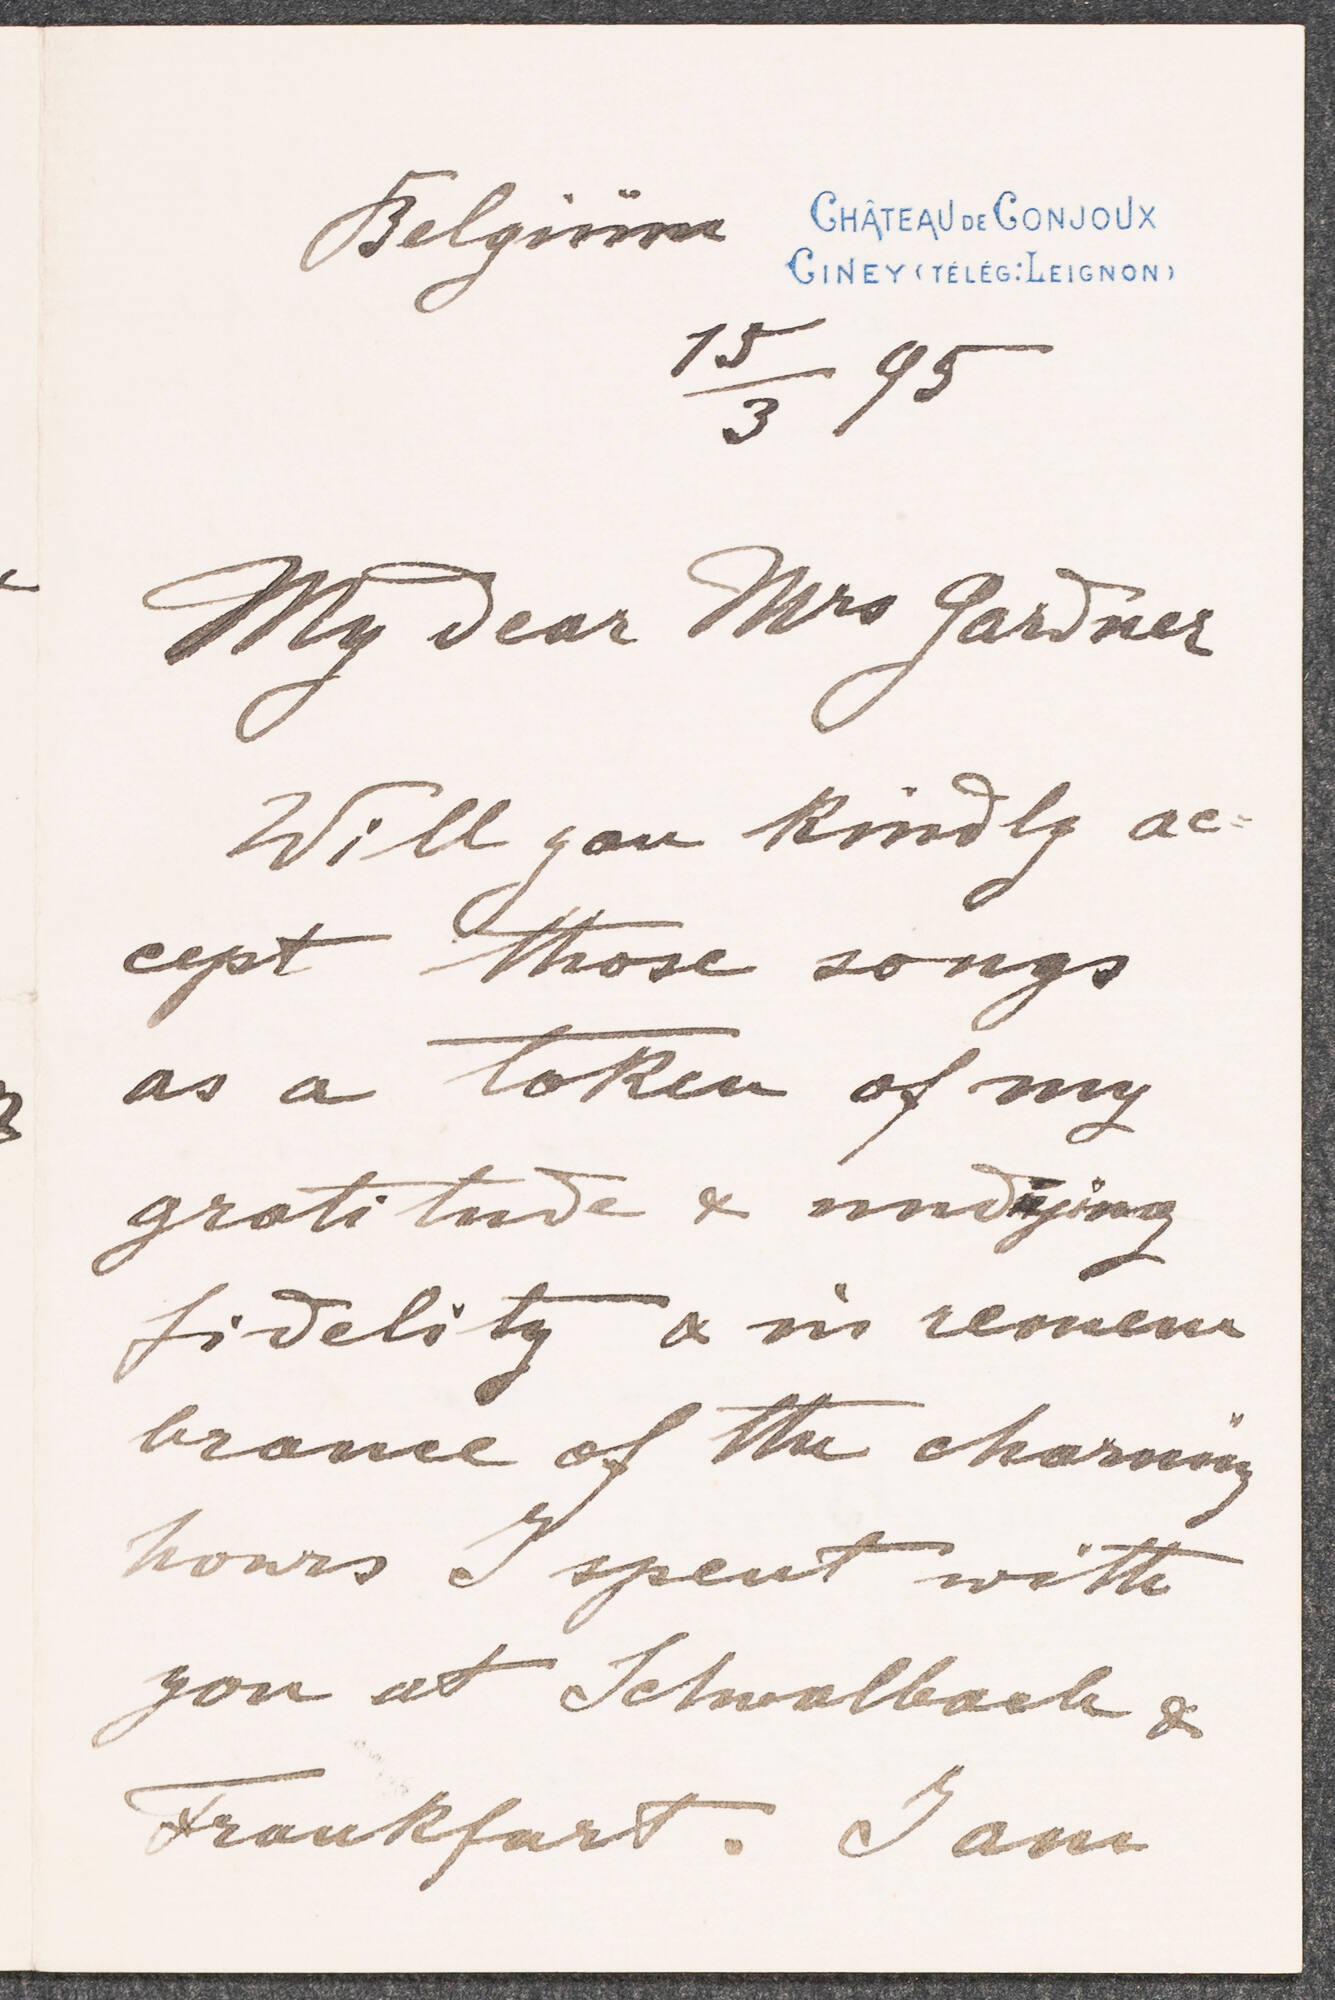 Belgium
CHÂTEAU DE CONJOUX
CINEY (TÉLÉG: LEIGNON)
15/3 95
My dear Mrs Gardner
Will you kindly ac=
cept those songs
as a token of my
gratitude & undying
fidelity & in remem
brance of the charming
hours I spent with
you at Schwalbach &
Frankfurt. I am